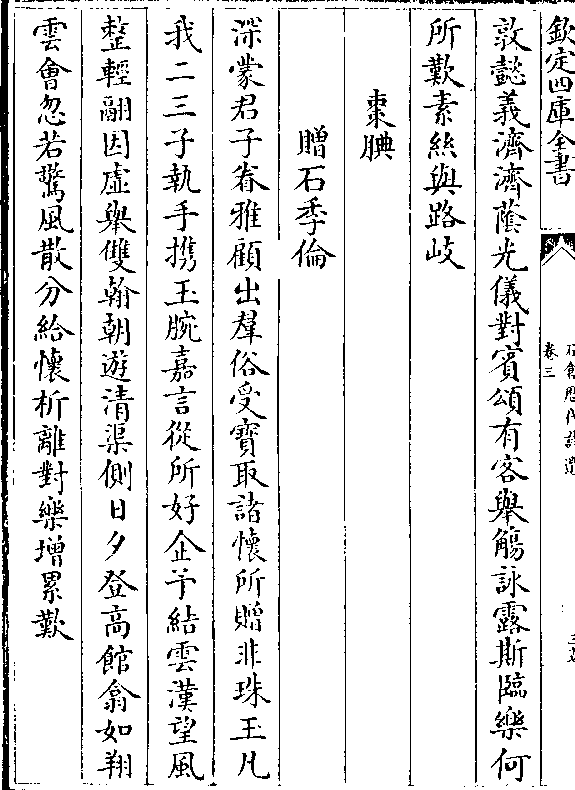 欽定四庫全書
石倉歷代詩選
卷三
敦懿義濟濟蔭光儀對賓頌有客舉觴詠露斯臨樂何
所歎素絲與路岐
棗腆
贈石季倫
深蒙君子眷雅顧出羣俗受寳取諸懷所贈非珠玉凡
我二三子執手携玉腕嘉言從所好企予結雲漢望風
整輕翮因虛舉雙翰朝遊清渠側日夕登高館翕如翔
雲會忽若驚風散分給懷析離對樂增累歎